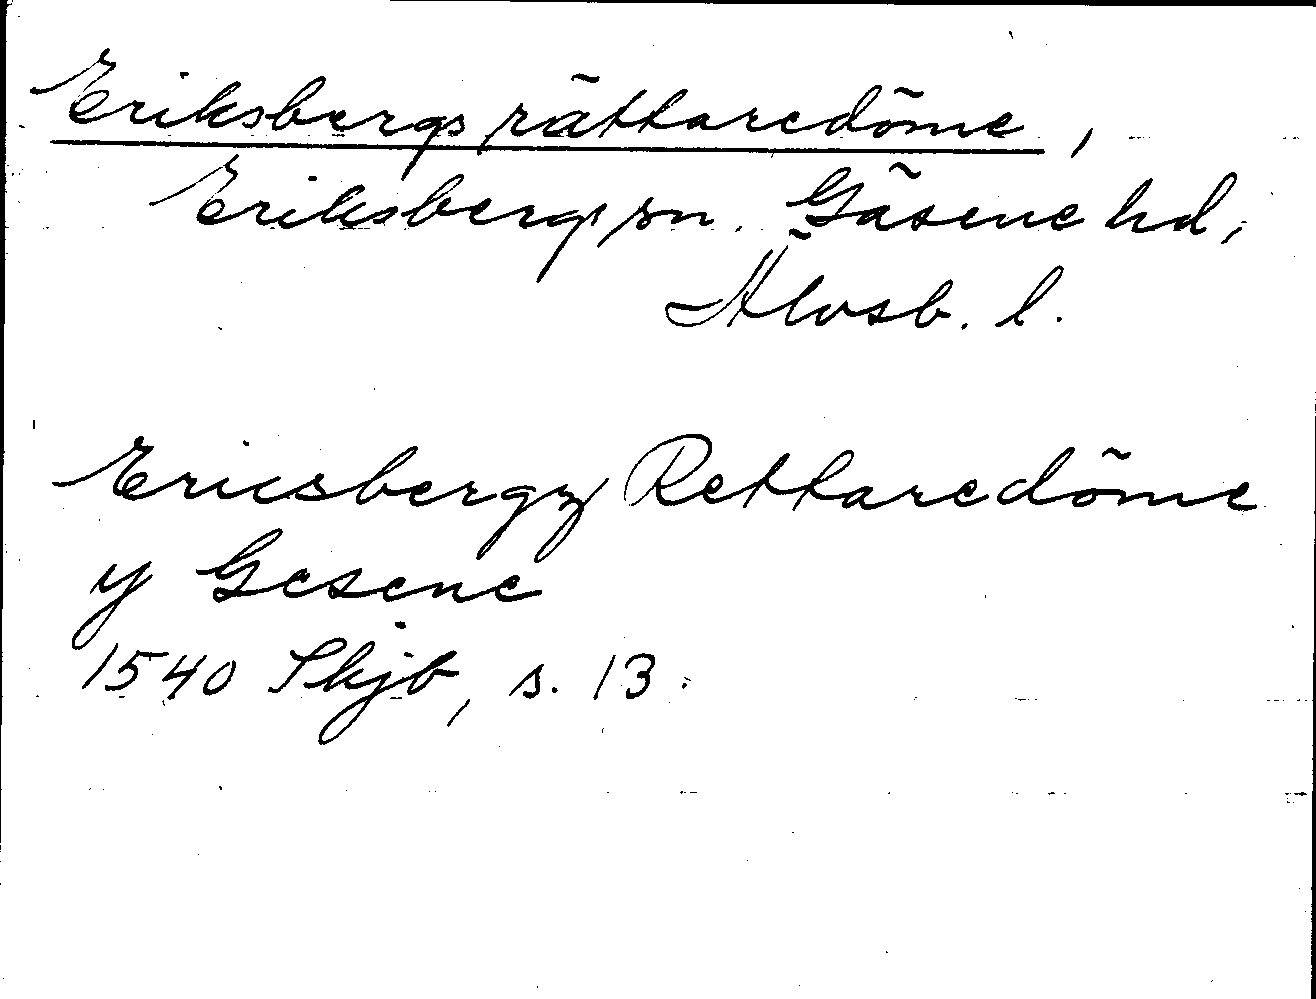 Eriksbergs rättaredöme,
Eriksbergs sn. Gäsene hd,
Älvsb. l.
Ericsbergz Rettaredöme
y Gesene
1540 Skjb, s. 13.